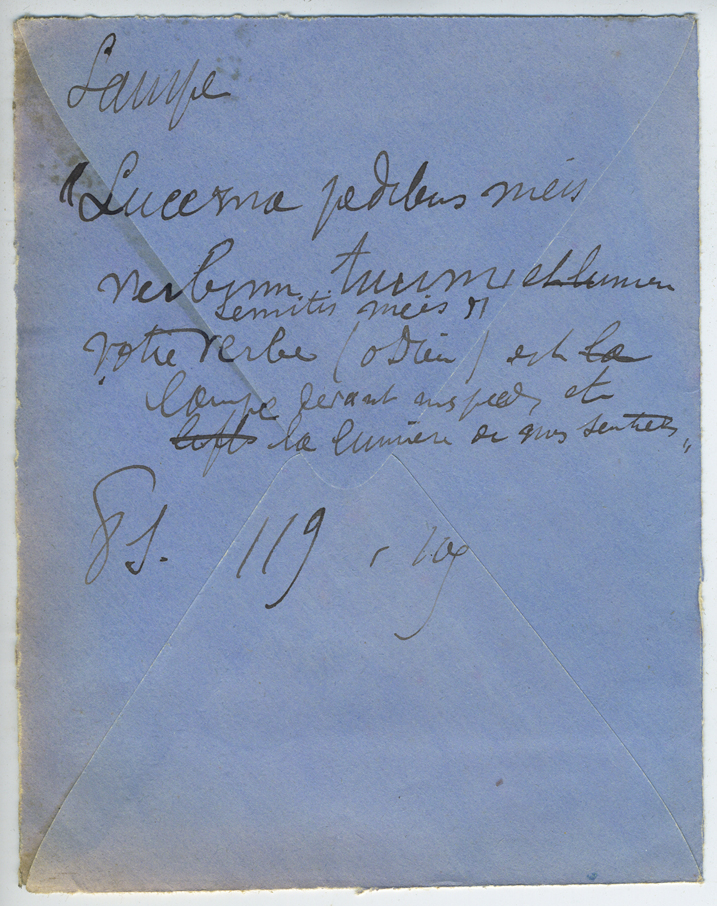 Lampe
"Lucerna pedibus meis
verbum tuum et lumen
semitis meis"
votre verbe (o Dieu) est la
lampe devant mes pieds et
la lumière de mes sentiers"
Ps. 119